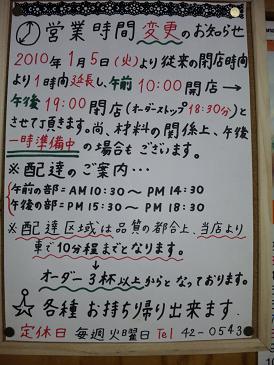 営業時間 変更のお知らせ
2010年 1月5日(火)より従来の閉店時間
より1時間延長し、午前10:00開店→
午後19:00閉店(オーダーストップ18:30分)と
させて頂きます。尚、材料の関係上、午後
一時準備中の場合もございます。
※配達のご案内・・・
午前の部=AM10:30〜PM14:30
午後の部=PM15:30〜PM18:30
※配達区域は品質の都合上、当店より
車で10分程までとなります。
→オーダー3杯以上からとなっております。
☆各種お持ち帰り出来ます。
定休日 毎週火曜日 Tel 42-0543